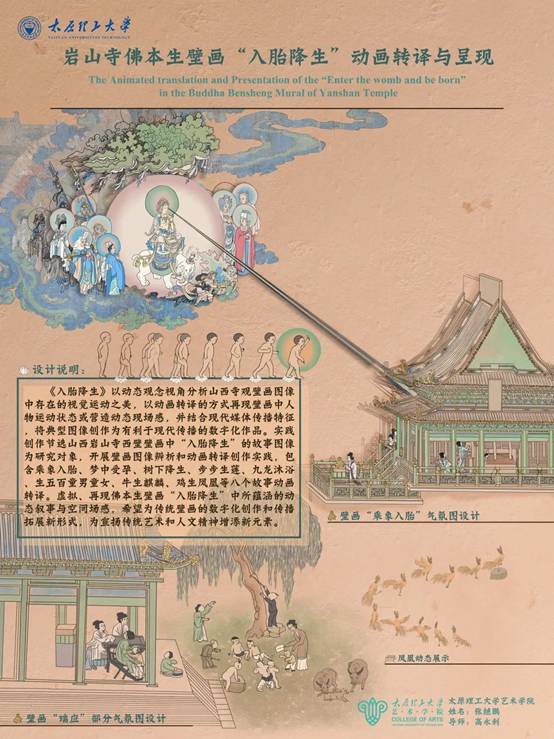 太原理工大学
TAIYUAN UNIVERSITY OF TECHNOLOGY
岩山寺佛本生壁画“入胎降生”动画转译与呈现
The Animated translation and Presentation of the “Enter the womb and be born”
in the Buddha Bensheng Mural of Yanshan Temple
设计说明:
《入胎降生》以动态观念视角分析山西寺观壁画图像
中存在的视觉运动之美,以动画转译的方式再现壁画中人
物运动状态或营造动态现场感,并结合现代媒体传播特征
,将典型图像创作为有利于现代传播的数字化作品。实践
创作节选山西岩山寺西壁壁画中“入胎降生”的故事图像
为研究对象,开展壁画图像辩析和动画转译创作实践,包
含乘象入胎、梦中受孕、树下降生、步步生莲、九龙沐浴
、生五百童男童女、牛生麒麟、鸡生凤凰等八个故事动画
转译。虚拟、再现佛本生壁画“入胎降生”中所蕴涵的动
态叙事与空间场感,希望为传统壁画的数字化创作和传播
拓展新形式,为宣扬传统艺术和人文精神增添新元素。
壁画“乘象入胎”气氛图设计
凤凰动态展示
壁画“瑞应”部分气氛图设计
太原理工大学
艺术学院
COLLEGE OF ARTS
太原理工大学艺术学院
姓名:张继鹏
导师:高永利